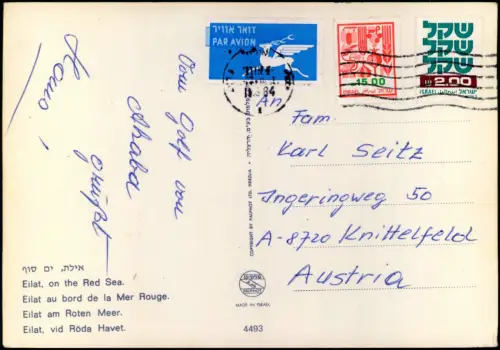 Vom Golf von
Akaba
grüßt
Hans!
דואר אוויר
PAR AVION
15.00
ISRAEL
שקל
שקל
שקל
2.00
ISRAEL
ישראל
An
Fam.
Karl Seitz
Ingeringweg 50
A-8720 Knittelfeld
Austria
אילת, ים סוף
Eilat, on the Red Sea.
Eilat au bord de la Mer Rouge.
Eilat am Roten Meer.
Eilat, vid Röda Havet.
PALPHOT
MADE IN ISRAEL
4493